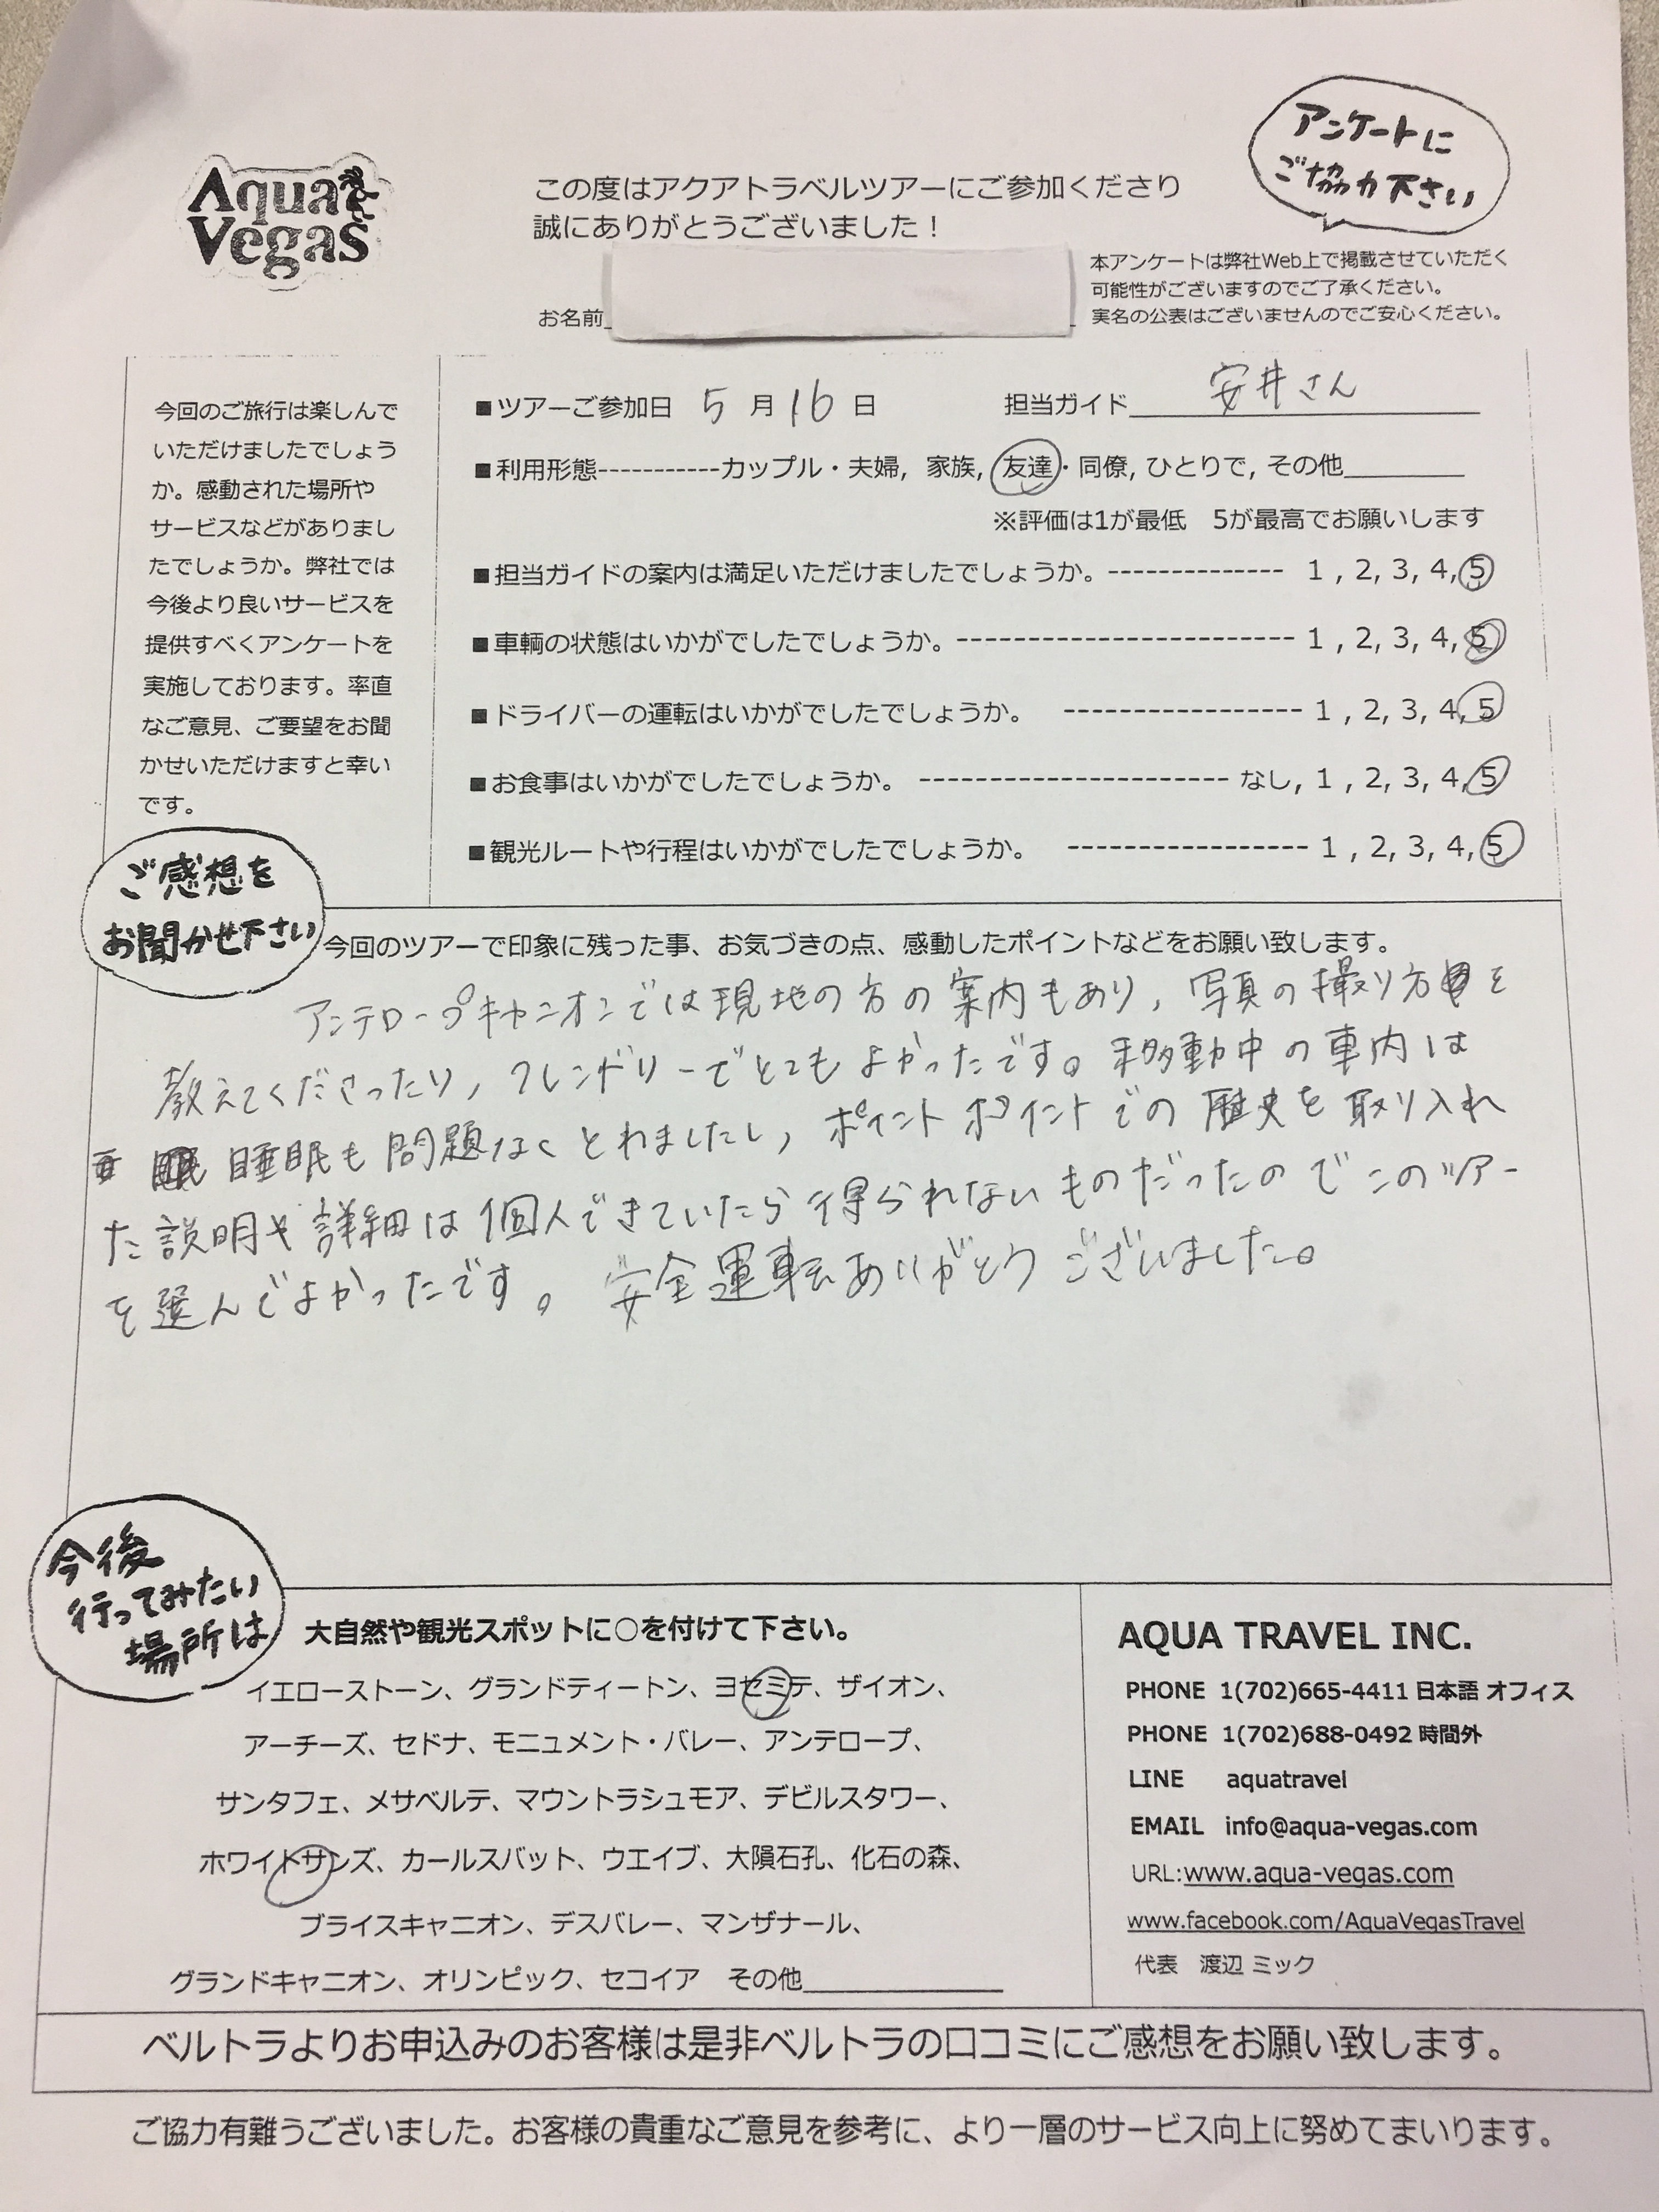 Aqua
Vegas
この度はアクアトラベルツアーにご参加くださり
誠にありがとうございました！
アンケートに
ご協力下さい
お名前
本アンケートは弊社Web上で掲載させていただく
可能性がございますのでご了承ください。
実名の公表はございませんのでご安心ください。
今回のご旅行は楽しんで
いただけましたでしょう
か。感動された場所や
サービスなどがありまし
たでしょうか。弊社では
今後より良いサービスを
提供すべくアンケートを
実施しております。率直
なご意見、ご要望をお聞
かせいただけますと幸い
です。
■ツアーご参加日 5 月 16 日 担当ガイド 安井さん
■利用形態-----------カップル・夫婦, 家族, 友達・同僚, ひとりで, その他
※評価は1が最低 5が最高でお願いします
■担当ガイドの案内は満足いただけましたでしょうか。-------------- 1 , 2, 3, 4, 5
■車輌の状態はいかがでしたでしょうか。------------------------ 1 , 2, 3, 4, 5
■ドライバーの運転はいかがでしたでしょうか。 ----------------- 1 , 2, 3, 4, 5
■お食事はいかがでしたでしょうか。 ---------------------- なし, 1 , 2, 3, 4, 5
■観光ルートや行程はいかがでしたでしょうか。 ----------------- 1 , 2, 3, 4, 5
ご感想を
お聞かせ下さい
今回のツアーで印象に残った事、お気づきの点、感動したポイントなどをお願い致します。
アンテロープキャニオンでは現地の方の案内もあり, 写真の撮り方を
教えてくださったり, フレンドリーでとてもよかったです。移動中の車内は
睡眠も問題なくとれましたし, ポイントポイントでの歴史を取り入れ
た説明や詳細は個人できていたら得られないものだったのでこのツアー
を選んでよかったです。安全運転ありがとうございました。
今後
行ってみたい
場所は
大自然や観光スポットに○を付けて下さい。
イエローストーン、グランドティートン、ヨセミテ、ザイオン、
アーチーズ、セドナ、モニュメント・バレー、アンテロープ、
サンタフェ、メサベルテ、マウントラシュモア、デビルスタワー、
ホワイトサンズ、カールスバット、ウエイブ、大隕石孔、化石の森、
ブライスキャニオン、デスバレー、マンザナール、
グランドキャニオン、オリンピック、セコイア その他
AQUA TRAVEL INC.
PHONE 1(702)665-4411 日本語 オフィス
PHONE 1(702)688-0492 時間外
LINE aquatravel
EMAIL info@aqua-vegas.com
URL:www.aqua-vegas.com
www.facebook.com/AquaVegasTravel
代表 渡辺 ミック
ベルトラよりお申込みのお客様は是非ベルトラの口コミにご感想をお願い致します。
ご協力有難うございました。お客様の貴重なご意見を参考に、より一層のサービス向上に努めてまいります。